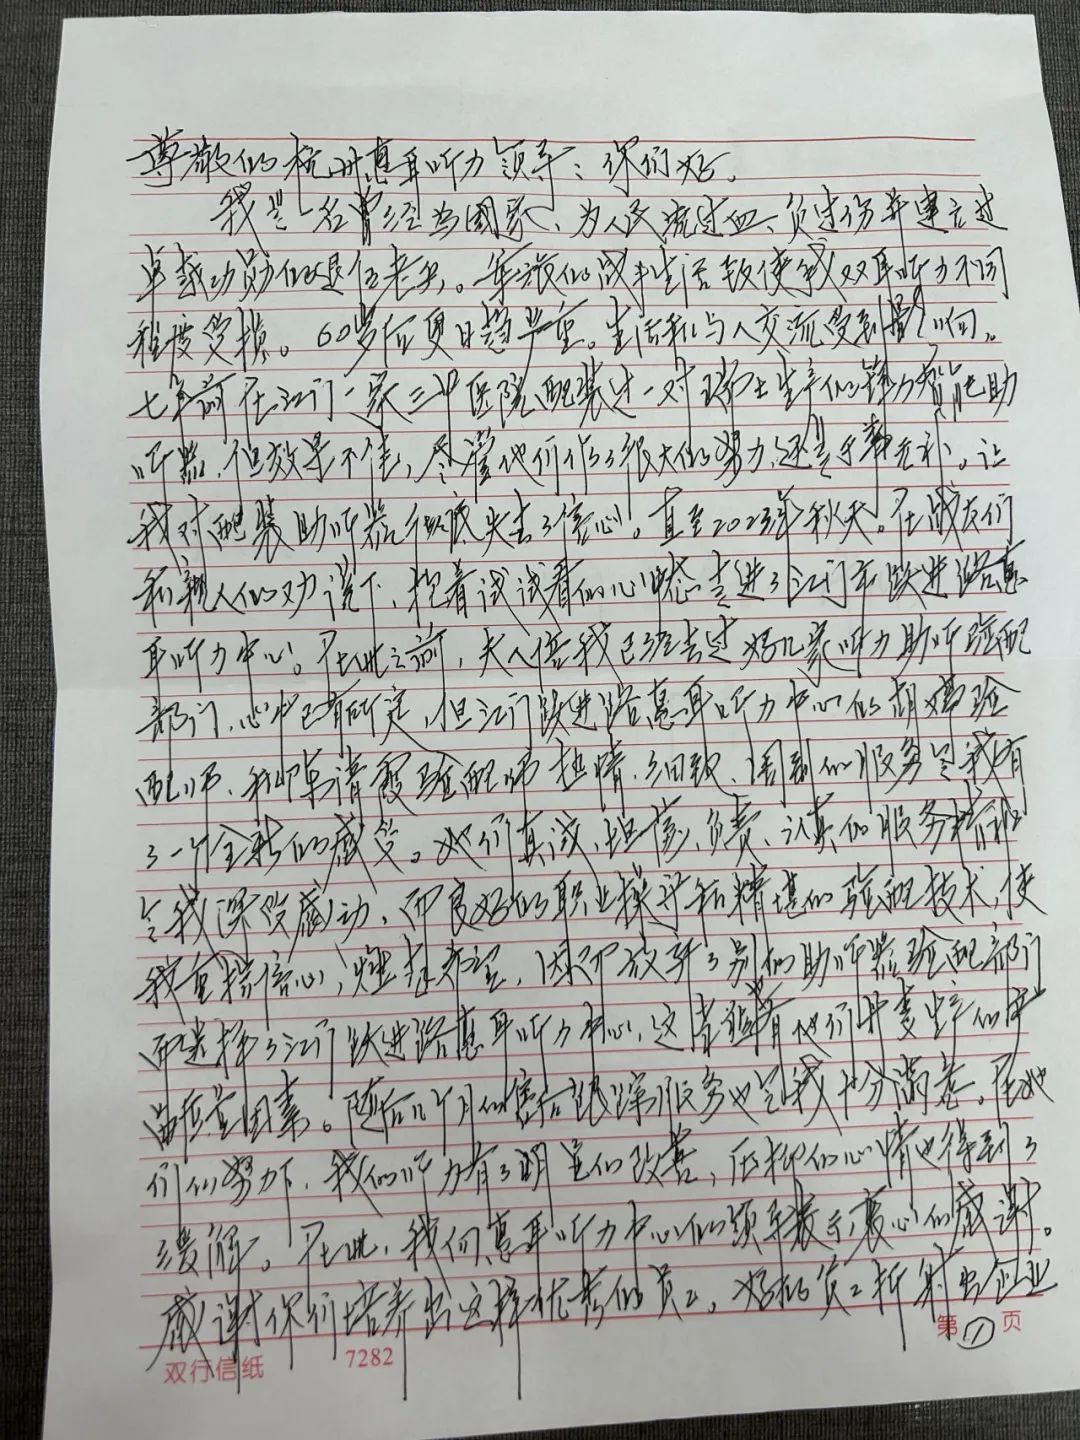 尊敬的杭州惠耳听力领导：你们好。
我是一名曾经为国家、为人民流过血、负过伤并建立过
卓越功勋的退伍老兵。军旅的战斗生活致使我双耳听力不同
程度受损。60岁后更日趋严重。生活和与人交流受到影响。
七年前在江门一家三甲医院配装过一对瑞士生产的锋力智能助
听器，但效果不佳，尽管他们作了很大的努力，还是于事无补。让
我对配装助听器彻底失去了信心。直至2023年秋天。在战友们
和亲人的劝说下，抱着试试看的心态走进了江门市跃进路惠
耳听力中心。在此之前，夫人陪我已经去过好几家听力助听验配
部门，心中已有所定，但江门跃进路惠耳听力中心的胡婵验
配师、和卓清霞验配师热情、细致、周到的服务令我有
了一个全新的感受。她们真诚、坦荡、负责、认真的服务精神
令我深受感动，而良好的职业操守和精堪的验配技术，使
我重拾信心，燃起希望，因而放弃了别的助听器验配部门
而选择了江门跃进路惠耳听力中心，这
品质量因素。随后几个月的售后跟踪服务也令我十分满意。在她
们的努力下，我的听力有了明显的改善，压抑的心情也得到了
缓解。在此，我向惠耳听力中心的领导表示衷心的感谢。
感谢你们培养出这样优秀的员工。好的员工折射出企业
第①页
双行信纸 7282